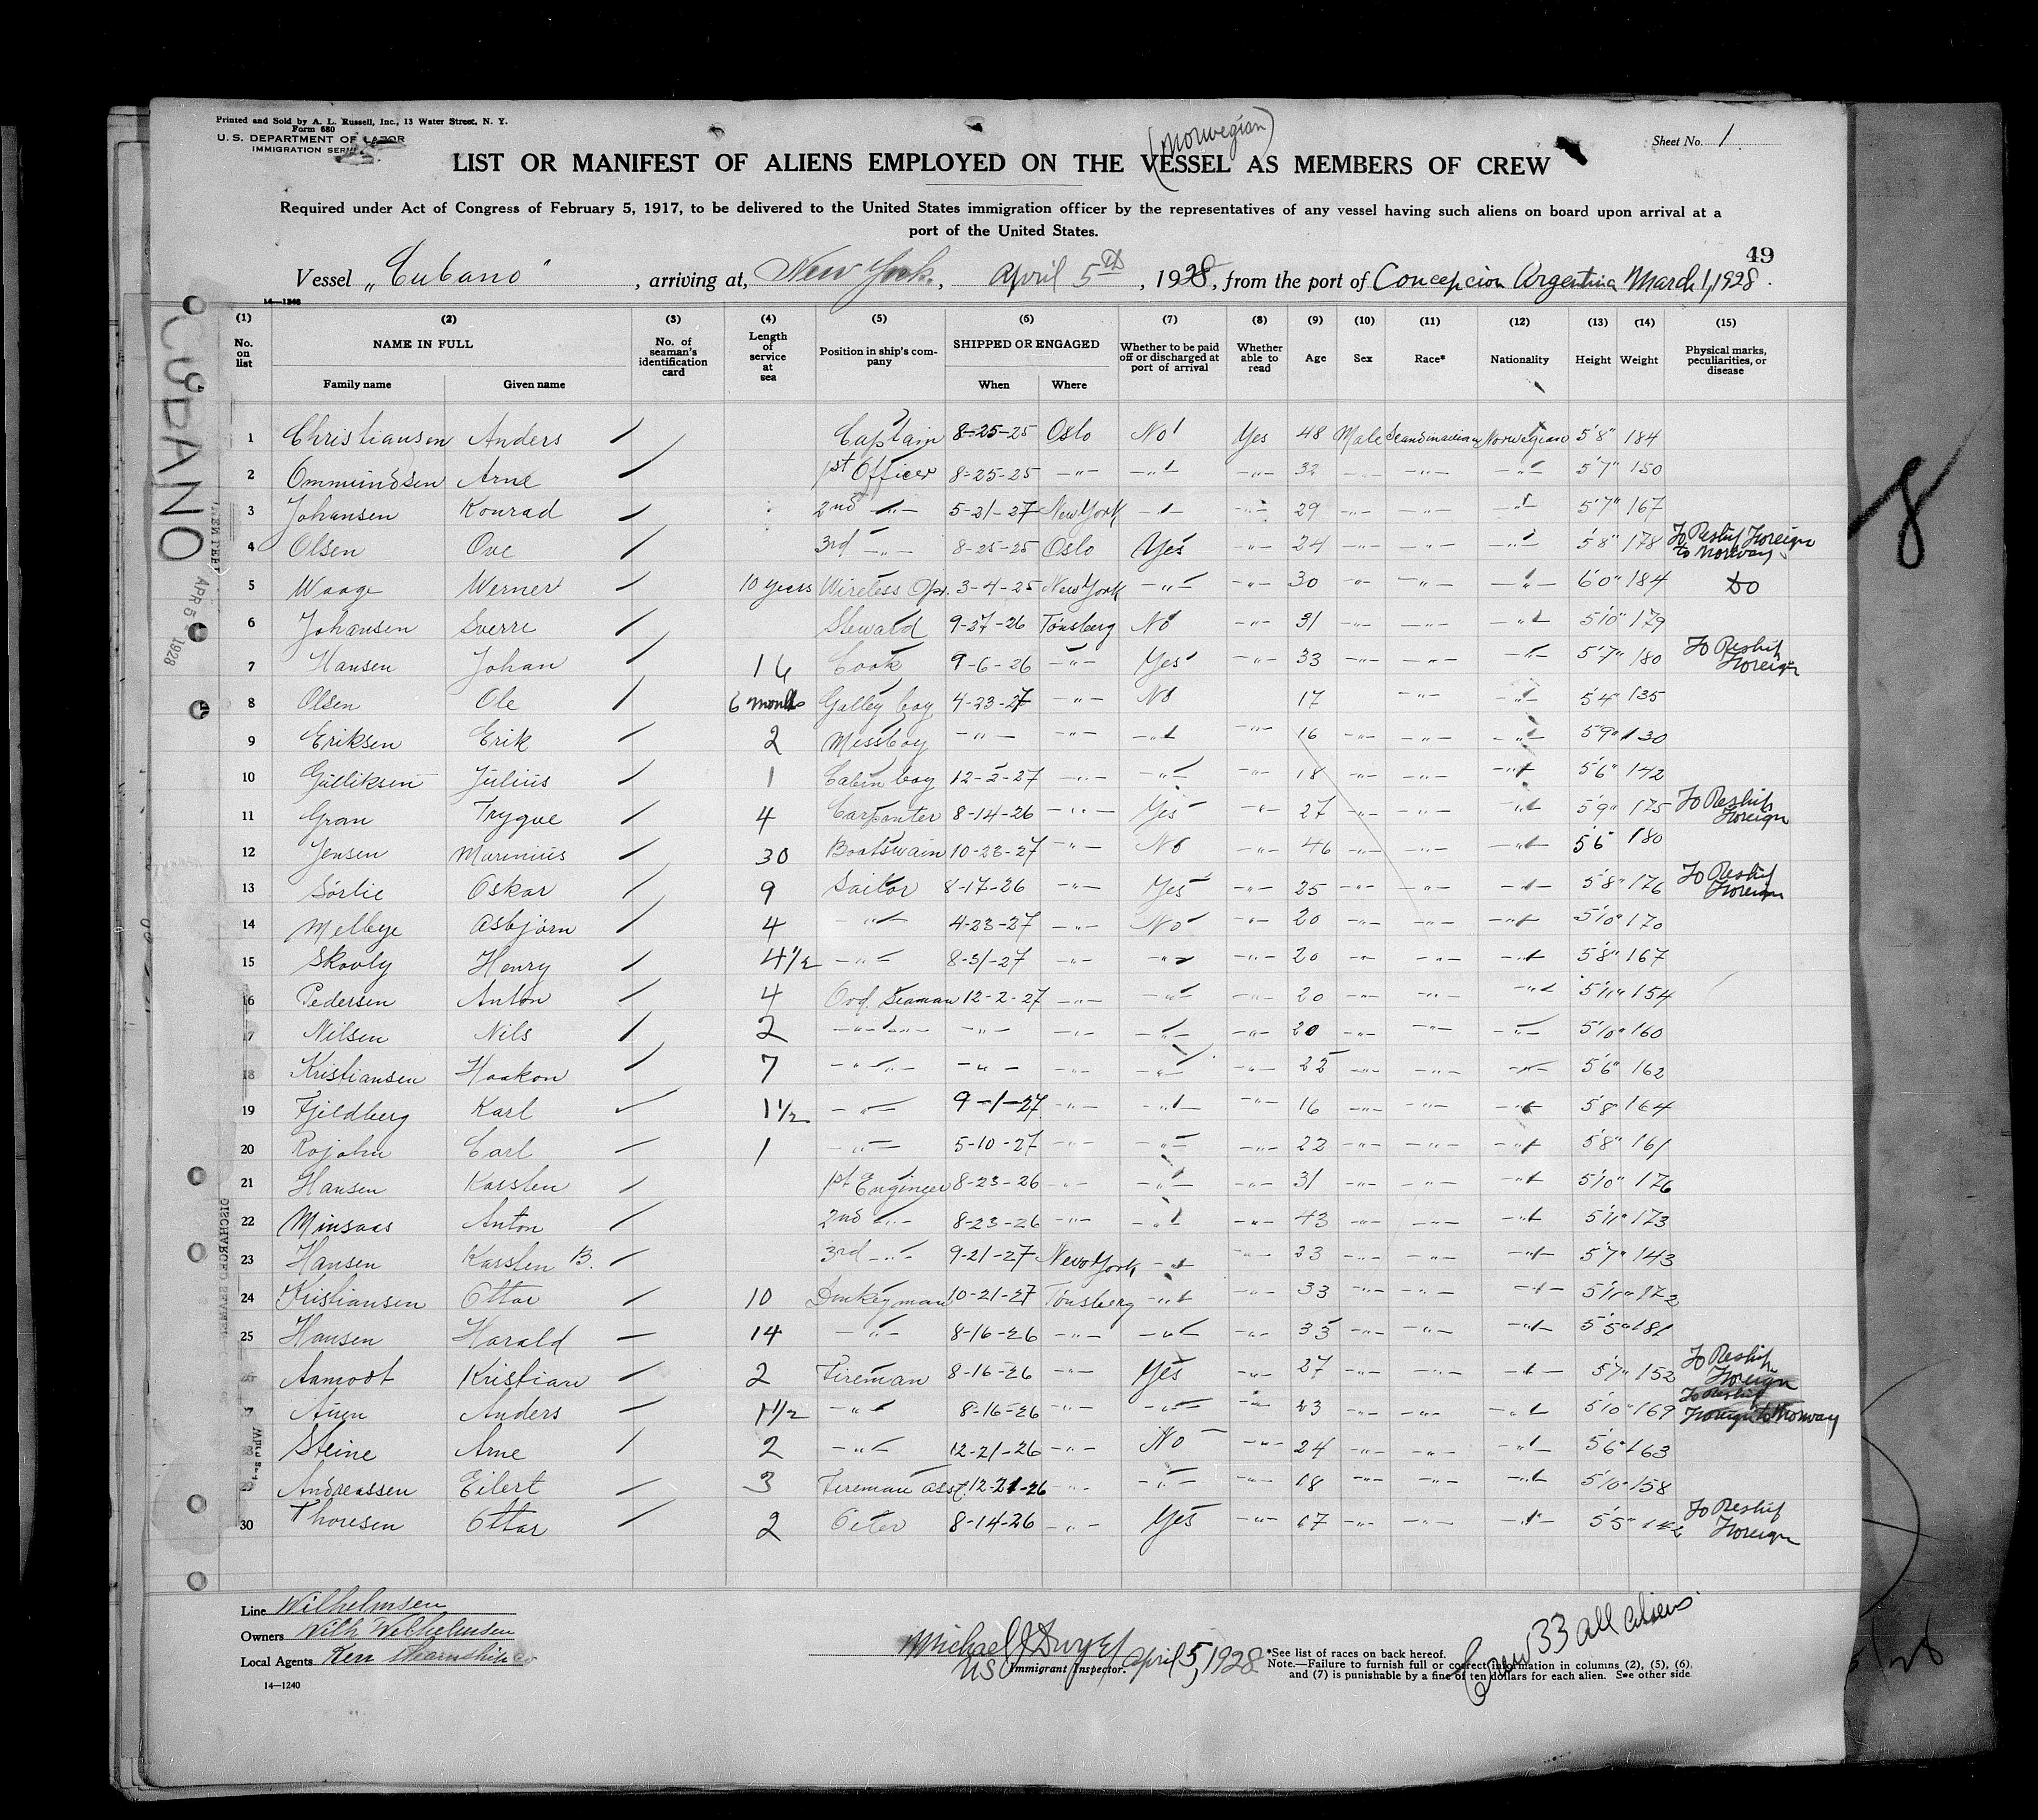 Printed and Sold by A. L. Russell, Inc., 13 Water Street, N. Y.
Form 680
U. S. DEPARTMENT OF LABOR
IMMIGRATION SERVICE
(Norwegian)
Sheet No. 1
LIST OR MANIFEST OF ALIENS EMPLOYED ON THE VESSEL AS MEMBERS OF CREW
Required under Act of Congress of February 5, 1917, to be delivered to the United States immigration officer by the representatives of any vessel having such aliens on board upon arrival at a
port of the United States.
49
Vessel "Cubano", arriving at, New York, April 5th, 1928, from the port of Concepcion Argentina March 1, 1928.
14—1240
(1) (2) (3) (4) (5) (6) (7) (8) (9) (10) (11) (12) (13) (14) (15)
No. on list NAME IN FULL No. of seaman's identification card Length of service at sea Position in ship's company SHIPPED OR ENGAGED Whether to be paid off or discharged at port of arrival Whether able to read Age Sex Race* Nationality Height Weight Physical marks, peculiarities, or disease
Family name Given name When Where
1 Christiansen Anders Captain 8-25-25 Oslo No Yes 48 Male Scandinavian Norwegian 5'8" 184
2 Ommundsen Arne 1st Officer 8-25-25 -"- -"- -"- 32 -"- -"- -"- 5'7" 150
3 Johansen Konrad 2nd -"- 5-21-27 New York -"- -"- 29 -"- -"- -"- 5'7" 167
4 Olsen Ove 3rd -"- 8-25-25 Oslo Yes -"- 24 -"- -"- -"- 5'8" 178 To Reship Foreign to Norway
5 Waage Werner 10 years Wireless Opr. 3-4-25 New York -"- -"- 30 -"- -"- -"- 6'0" 184 Do
6 Johansen Sverre Steward 9-27-26 Tönsberg No -"- 31 -"- -"- -"- 5'10" 179
7 Hansen Johan 16 Cook 9-6-26 -"- Yes -"- 33 -"- -"- -"- 5'7" 180 To Reship Foreign
8 Olsen Ole 6 months Galley boy 4-23-27 -"- No 17 -"- -"- 5'4" 135
9 Eriksen Erik 2 Messboy -"- -"- -"- -"- 16 -"- -"- -"- 5'9" 130
10 Gulliksen Julius 1 Cabin boy 12-2-27 -"- -"- -"- 18 -"- -"- -"- 5'6" 142
11 Gran Trygve 4 Carpenter 8-14-26 -"- Yes -"- 27 -"- -"- -"- 5'9" 175 To Reship Foreign
12 Jensen Marinius 30 Boatswain 10-23-27 -"- No -"- 46 -"- -"- -"- 5'6" 180
13 Sörlie Oskar 9 Sailor 8-17-26 -"- Yes -"- 25 -"- -"- -"- 5'8" 176 To Reship Foreign
14 Melbye Asbjörn 4 -"- 4-23-27 -"- No -"- 20 -"- -"- -"- 5'10" 170
15 Skovly Henry 4 1/2 -"- 8-31-27 -"- -"- -"- 20 -"- -"- -"- 5'8" 167
16 Pedersen Anton 4 Ord. Seaman 12-2-27 -"- -"- -"- 20 -"- -"- -"- 5'11" 154
17 Nilsen Nils 2 -"- -"- -"- -"- -"- -"- 20 -"- -"- -"- 5'10" 160
18 Kristiansen Haakon 7 -"- -"- -"- -"- -"- -"- 22 -"- -"- -"- 5'6" 162
19 Fjeldberg Karl 1 1/2 -"- 9-1-27 -"- -"- -"- 16 -"- -"- -"- 5'8" 164
20 Rojohn Carl 1 -"- 5-10-27 -"- -"- -"- 22 -"- -"- -"- 5'8" 161
21 Hansen Karsten 1st Engineer 8-23-26 -"- -"- -"- 31 -"- -"- -"- 5'10" 176
22 Minsaas Anton 2nd -"- 8-23-26 -"- -"- -"- 43 -"- -"- -"- 5'11" 173
23 Hansen Karsten B. 3rd -"- 9-21-27 New York -"- -"- 23 -"- -"- -"- 5'7" 143
24 Kristiansen Ottar 10 Donkeyman 10-21-27 Tönsberg -"- -"- 33 -"- -"- -"- 5'11" 172
25 Hansen Harald 14 -"- 8-16-26 -"- -"- -"- 35 -"- -"- -"- 5'5" 181
26 Aamodt Kristian 2 Fireman 8-16-26 -"- Yes -"- 27 -"- -"- -"- 5'7" 152 To Reship Foreign
27 Auen Anders 1 1/2 -"- 8-16-26 -"- -"- -"- 23 -"- -"- -"- 5'10" 169 To Reship Foreign to Norway
28 Steine Arne 2 -"- 12-21-26 -"- No -"- 24 -"- -"- -"- 5'6" 163
29 Andreassen Eilert 3 Fireman asst. 12-21-26 -"- -"- -"- 18 -"- -"- -"- 5'10" 158
30 Thoresen Ottar 2 8-14-26 -"- Yes -"- -"- -"- -"- 5'5" 142 To Reship Foreign
Line Wilhelmsen
Owners Wilh Wilhelmsen
Local Agents Kerr Steamship Co
14—1240
Michael J Dwyer
US Immigrant Inspector. April 5, 1928
*See list of races on back hereof.
Note.—Failure to furnish full or correct information in columns (2), (5), (6),
and (7) is punishable by a fine of ten dollars for each alien. See other side
Crew 33 all aliens
CUBANO
APR 5 1928
8